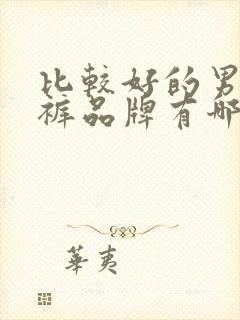 比較好的男
褲品牌有哪
華夷